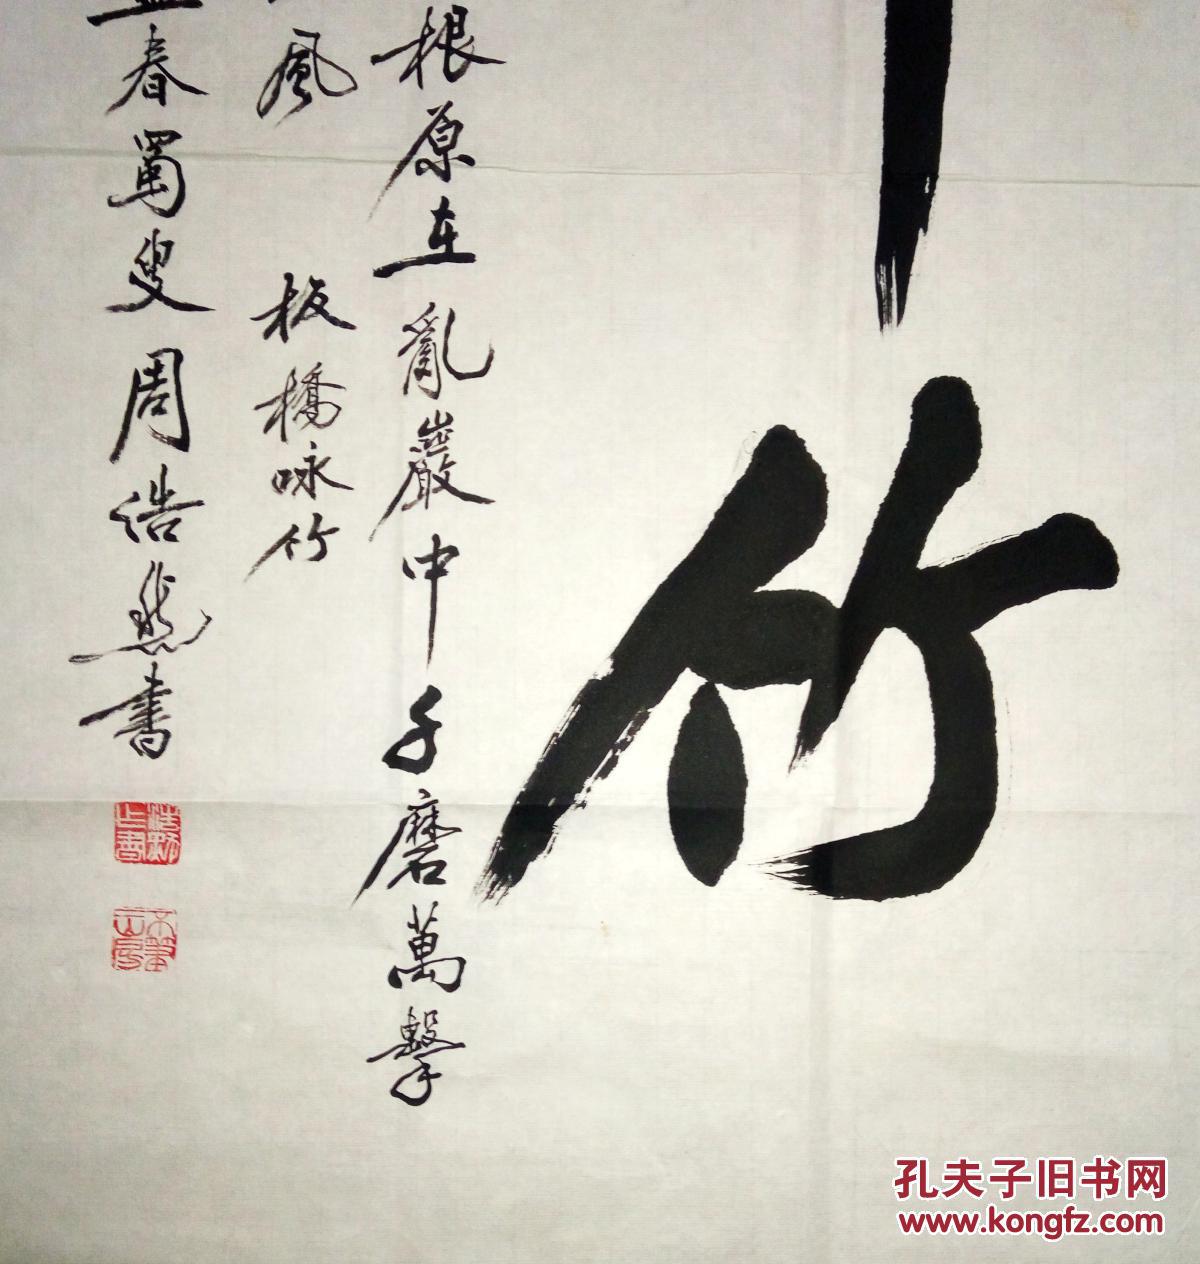 竹
根原在亂巖中千磨萬擊
風
板橋咏竹
春蜀叟周浩然書
孔夫子旧书网
www.kongfz.com